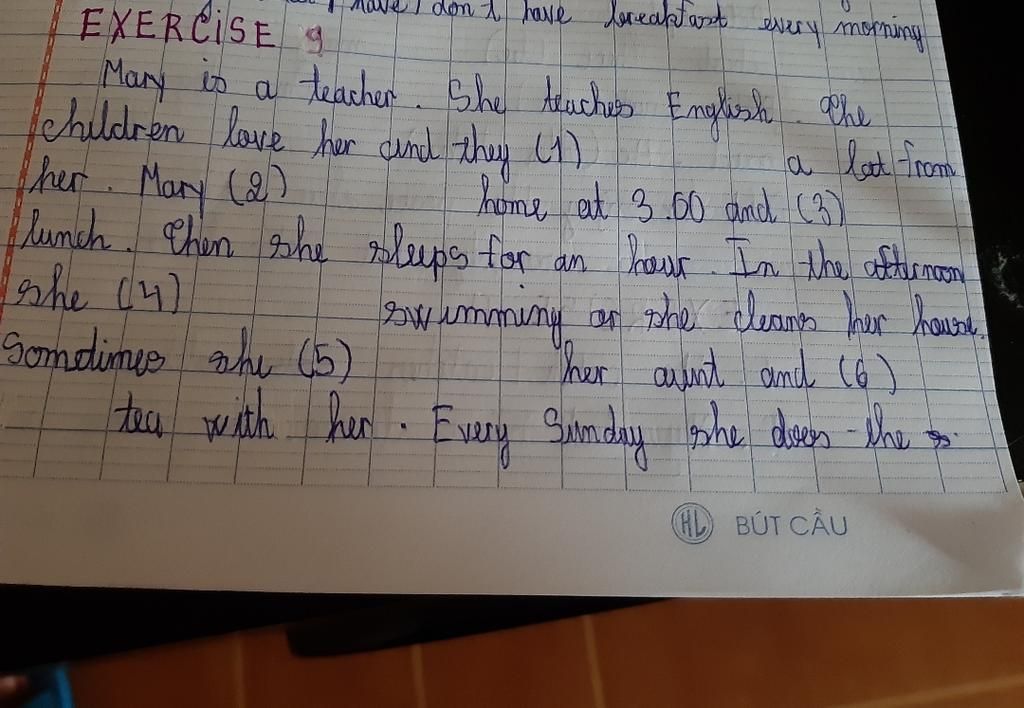 have / don't have breakfast every morning
EXERCISE 9
Mary is a teacher. She teaches English. The
children love her and they (1) a lot from
her. Mary (2) home at 3.00 and (3)
lunch. Then she sleeps for an hour. In the afternoon
she (4) swimming or she cleans her house.
Sometimes she (5) her aunt and (6)
tea with her. Every Sunday she does the
HL BÚT CẦU